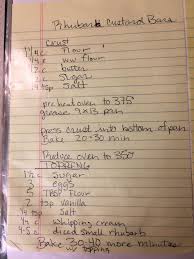 Rhubarb Custard Bars
Crust
1 1/4 c Flour
3/4 c ww flour
1/2 c butter
2 Sugar
1/4 tsp Salt
preheat oven to 375°
grease 9x13 pan
press crust into bottom of pan
Bake 20-30 min
Reduce oven to 350°
TOPPING
1 1/2 c Sugar
2 eggs
5 TBSP Flour
2 tsp vanilla
1/4 tsp Salt
1/2 c whipping cream
4-5 c diced small rhubarb
Bake 30-40 more minutes
w/ topping